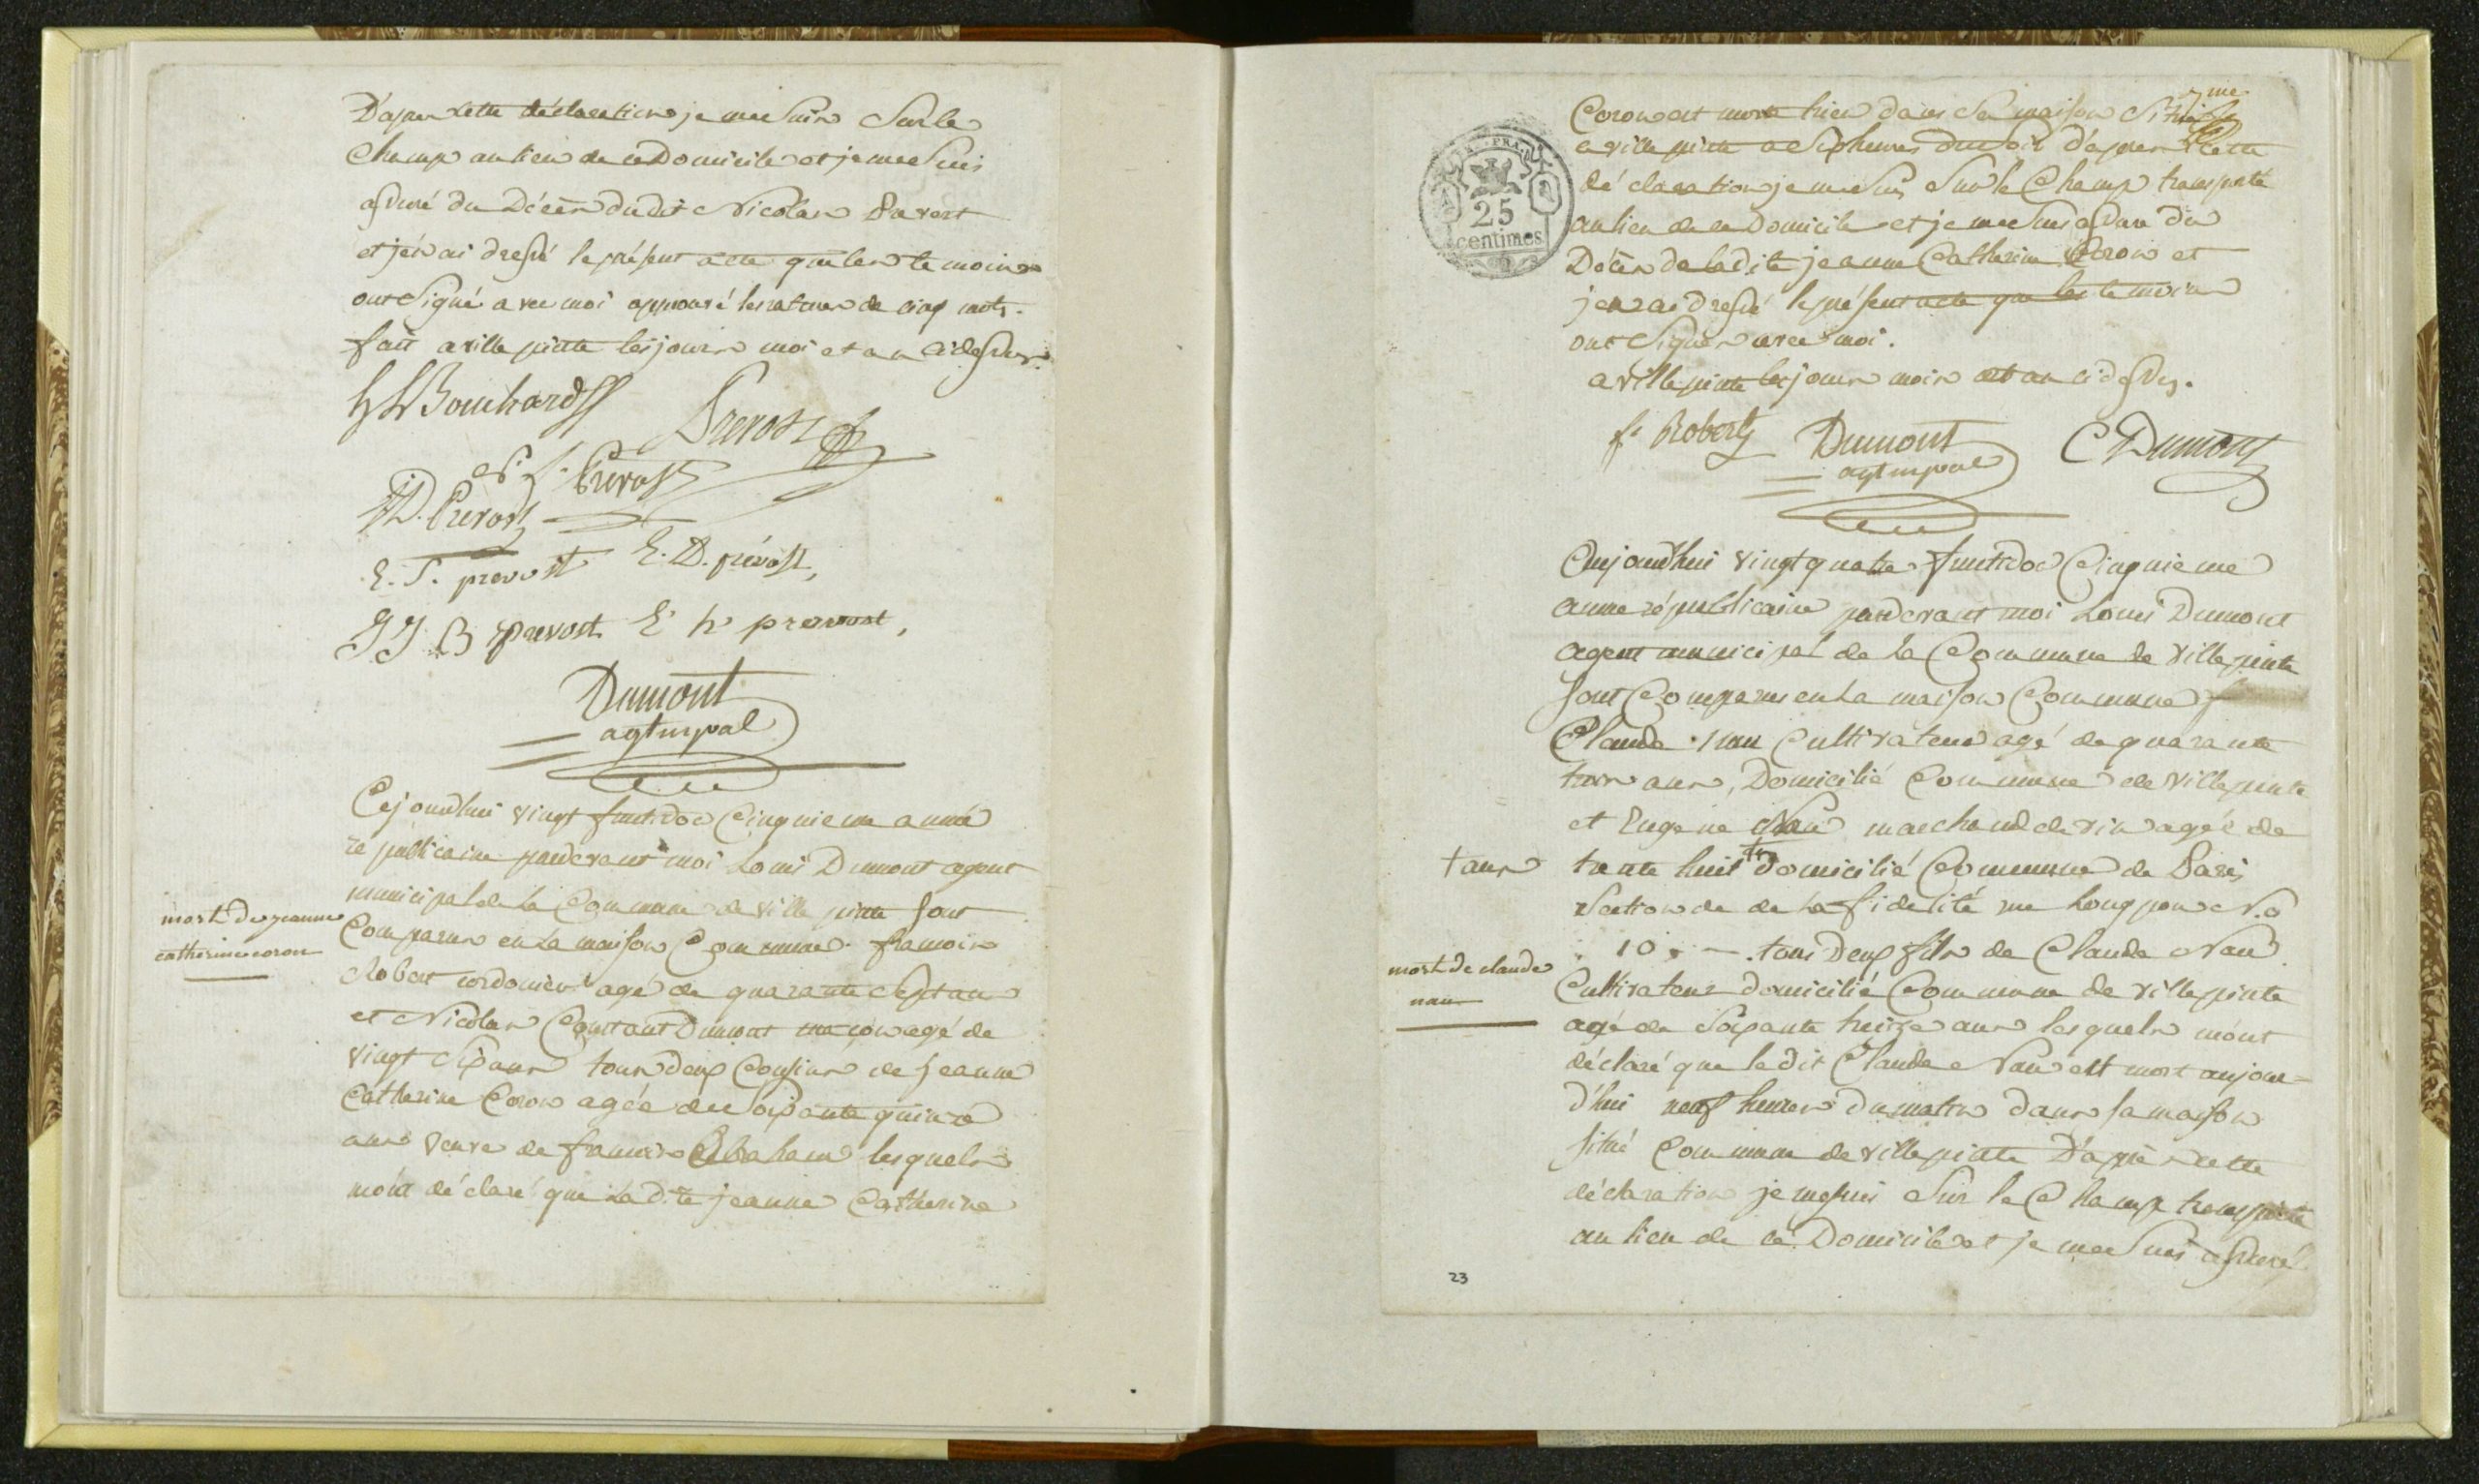 D'après cette déclaration je me suis sur le
champ au lieu de ce Domicile et je me suis
assuré du Décès du dit Nicolas
et j'en ai dressé le présent acte que les temoins
ont Signé avec moi approuvé les ratures de cinq mots.
fait a ville pinte les jours moi et an ci dessus.
Bouchard
Prevost
Prevost
D. Prevost
E. D. prévost,
E. S. prevost
J J B prevost E h prevost,
Dumont
agt mpal
Cejourdhui vingt fructidor Cinquieme année
republicaine pardevant moi Louis Dumont agent
municipal de la Commune de ville pinte sont
mort de jeanne
catherine coron
Comparus en la maison Commune francois
Robert cordonier agé de quarante Sept ans
et Nicolas Constant Dumont maçon agé de
vingt Six ans tous deux Cousins de jeanne
Catherine Coron agée de Soixante quinze
ans veuve de francois Abraham lesquels
mont déclaré que la dite jeanne Catherine
me
Coron est morte hier dans Sa maison Situé
a ville pinte a Six heures du Soir d'après Cette
déclaration je me suis Sur le Champ transporté
au lieu de ce Domicile et je me suis assuré du
Décès de la dite jeanne Catherine Coron et
jen ai dressé le présent acte que les temoins
ont Signés avec moi.
a ville pinte les jours mois et an ci dessus.
fs Robert Dumont C Dumont
agt mpal
25
centimes
Cejourdhui vingt quatre fructidor Cinquieme
anne républicaine pardevant moi Louis Dumont
agent municipal de la Commune de Villepinte
sont Comparus en la maison Commune
Claude nau Cultivateur agé de quarante
trois ans, Domicilié Commune de Villepinte
et Eugene Nau marchand de vin agé de
+ ans
trente huit + domicilié Commune de Paris
Section de de la fidelité rue Longpon No
10. tous Deux fils de Claude Nau
mort de claude
nau
Cultivateur domicilié Commune de villepinte
agé de Soixante treize ans lesquels mont
déclaré que le dit Claude Nau est mort aujour-
d'hui neuf heures du matin dans sa maison
situé Commune de villepinte D'après cette
déclaration je me suis Sur le Champ transporté
au lieu de ce Domicile et je me suis assuré
23